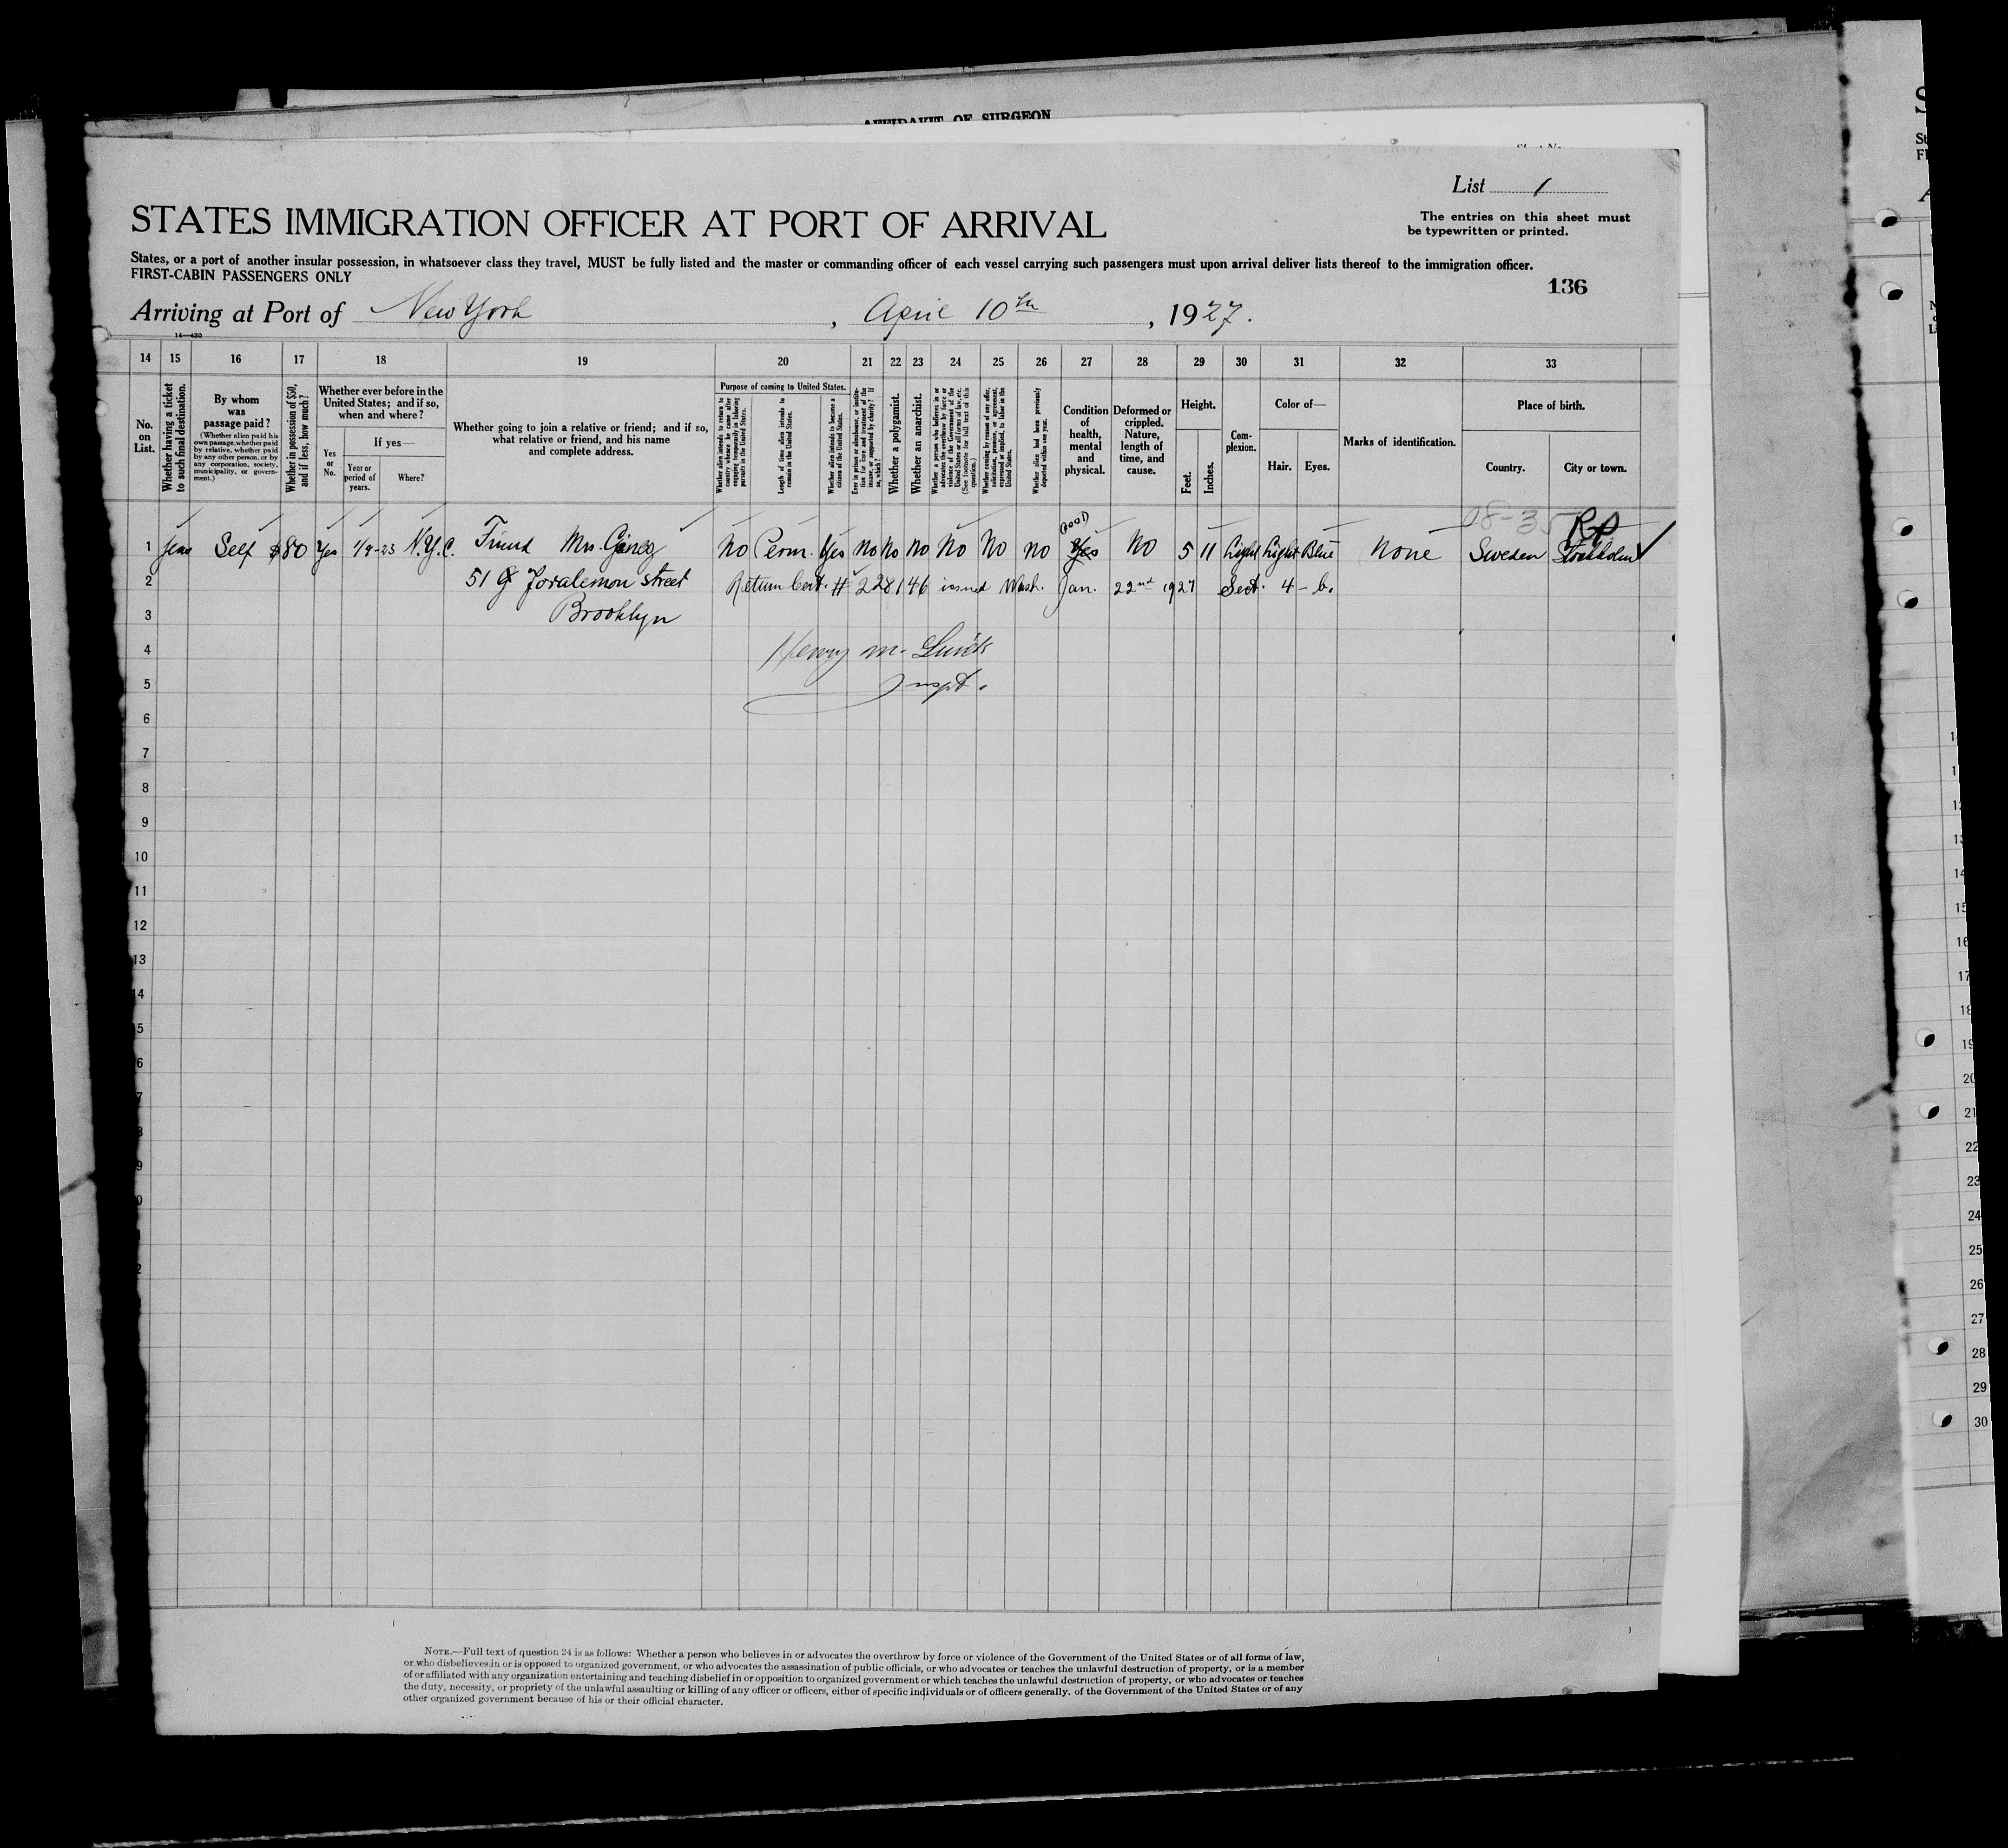 AFFIDAVIT OF SURGEON
List 1
STATES IMMIGRATION OFFICER AT PORT OF ARRIVAL
The entries on this sheet must
be typewritten or printed.
States, or a port of another insular possession, in whatsoever class they travel, MUST be fully listed and the master or commanding officer of each vessel carrying such passengers must upon arrival deliver lists thereof to the immigration officer.
FIRST-CABIN PASSENGERS ONLY
136
Arriving at Port of New York, April 10th, 1927.
14—430
14 15 16 17 18 19 20 21 22 23 24 25 26 27 28 29 30 31 32 33
No. on List.
Whether having a ticket to such final destination.
By whom was passage paid?
(Whether alien paid his own passage, whether paid by relative, whether paid by any other person, or by any corporation, society, municipality, or government.)
Whether in possession of $50, and if less, how much?
Whether ever before in the United States; and if so, when and where?
Yes or No.
If yes—
Year or period of years.
Where?
Whether going to join a relative or friend; and if so, what relative or friend, and his name and complete address.
Purpose of coming to United States.
Whether alien intends to return to country whence he came after engaging temporarily in laboring pursuits in the United States.
Length of time alien intends to remain in the United States.
Whether alien intends to become a citizen of the United States.
Ever in prison or almshouse, or institution for care and treatment of the insane, or supported by charity? If so, which?
Whether a polygamist.
Whether an anarchist.
Whether a person who believes in or advocates the overthrow by force or violence of the Government of the United States or all forms of law, etc. (See footnote for full text of this question.)
Whether coming by reason of any offer, solicitation, promise, or agreement, expressed or implied, to labor in the United States.
Whether alien had been previously deported within one year.
Condition of health, mental and physical.
Deformed or crippled. Nature, length of time, and cause.
Height.
Feet.
Inches.
Complexion.
Color of—
Hair.
Eyes.
Marks of identification.
Place of birth.
Country.
City or town.
08-35
Good
1 Yes Self $80 Yes 1/9-23 N.Y.C. Friend Mrs. No Perm. Yes no no no No No no Yes No 5 11 Light Light Blue None Sweden Stockholm
2 51 Joralemon street Return Cert. # 228146 issued Wash. Jan. 22nd 1927 Sect. 4-b.
3 Brooklyn
4 Henry M.
5 Inspt.
6
7
8
9
10
11
12
13
14
5
6
7
8
9
0
2
NOTE.—Full text of question 24 is as follows: Whether a person who believes in or advocates the overthrow by force or violence of the Government of the United States or of all forms of law,
or who disbelieves in or is opposed to organized government, or who advocates the assassination of public officials, or who advocates or teaches the unlawful destruction of property, or is a member
of or affiliated with any organization entertaining and teaching disbelief in or opposition to organized government or which teaches the unlawful destruction of property, or who advocates or teaches
the duty, necessity, or propriety of the unlawful assaulting or killing of any officer or officers, either of specific individuals or of officers generally, of the Government of the United States or of any
other organized government because of his or their official character.
14
16
17
18
19
20
21
22
23
24
25
26
27
28
29
30